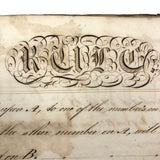 RULE
upon A, do one of the numbers on
the other number on A, will
on B.